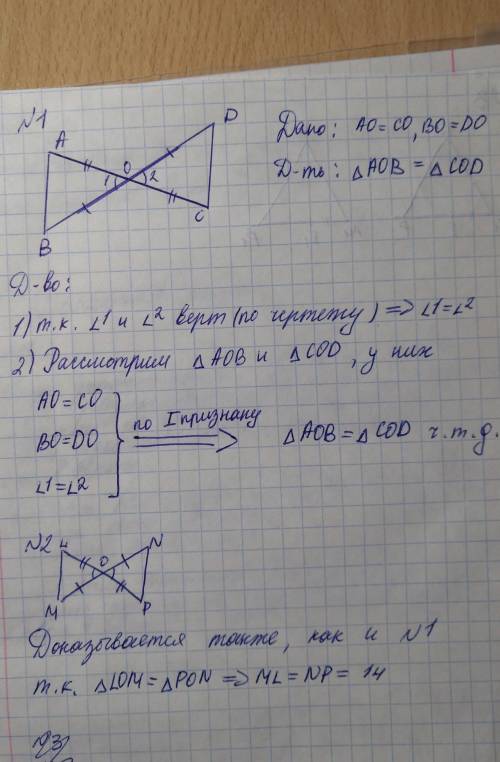 N1
A
D
O
1
2
C
B
Дано: AO=CO, BO=DO
Д-ть: △AOB = △COD
Д-во:
1) т.к. ∠1 и ∠2 верт (по чертежу) => ∠1=∠2
2) Рассмотрим △AOB и △COD, у них
AO=CO
BO=DO
∠1=∠2
по I признаку
△AOB=△COD ч.т.д.
N2
L
N
O
M
P
Доказывается также, как и N1
т.к. △LOM=△PON => ML=NP= 14
N3